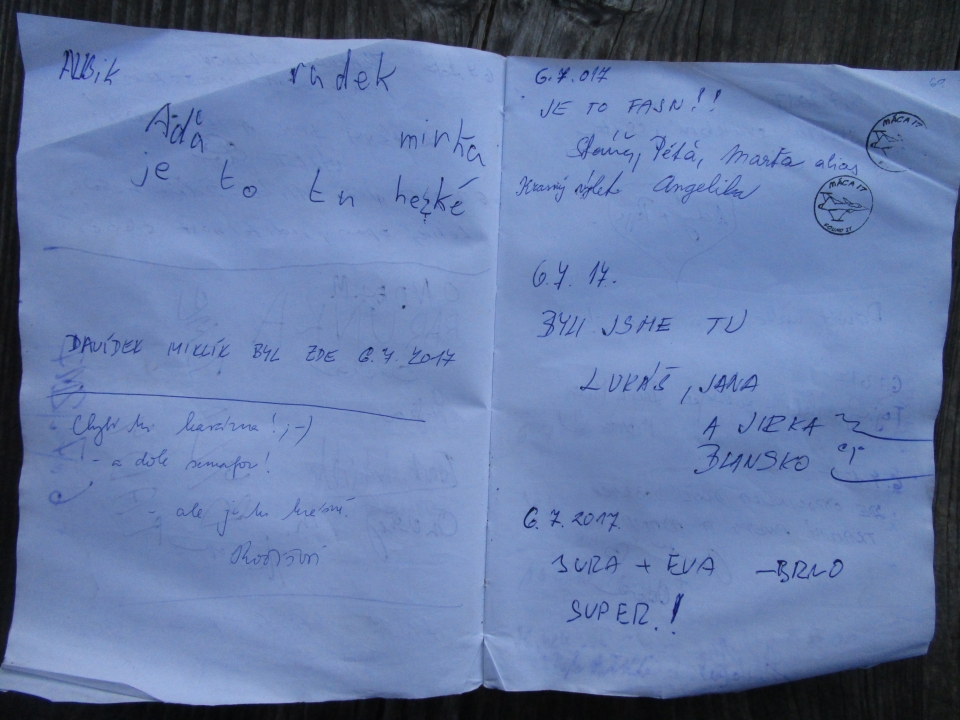 ALBik radek
Áďa minka
je to tu hezké
DAVÍDEK MIKLÍK BYL ZDE 6.7.2017
Chybí tu kavárna! ;-)
- a dole semafor!
- ale je tu krásně.
6.7.017
JE TO FAJN!!
Péťa, Marťa alias
Krásný výlet Angelika
MÁCA 17
MÁCA 17
6.7.17.
BYLI JSME TU
LUKÁŠ, JANA
A JIRKA
BLANSKO
6.7.2017
JURA + EVA - BRNO
SUPER!